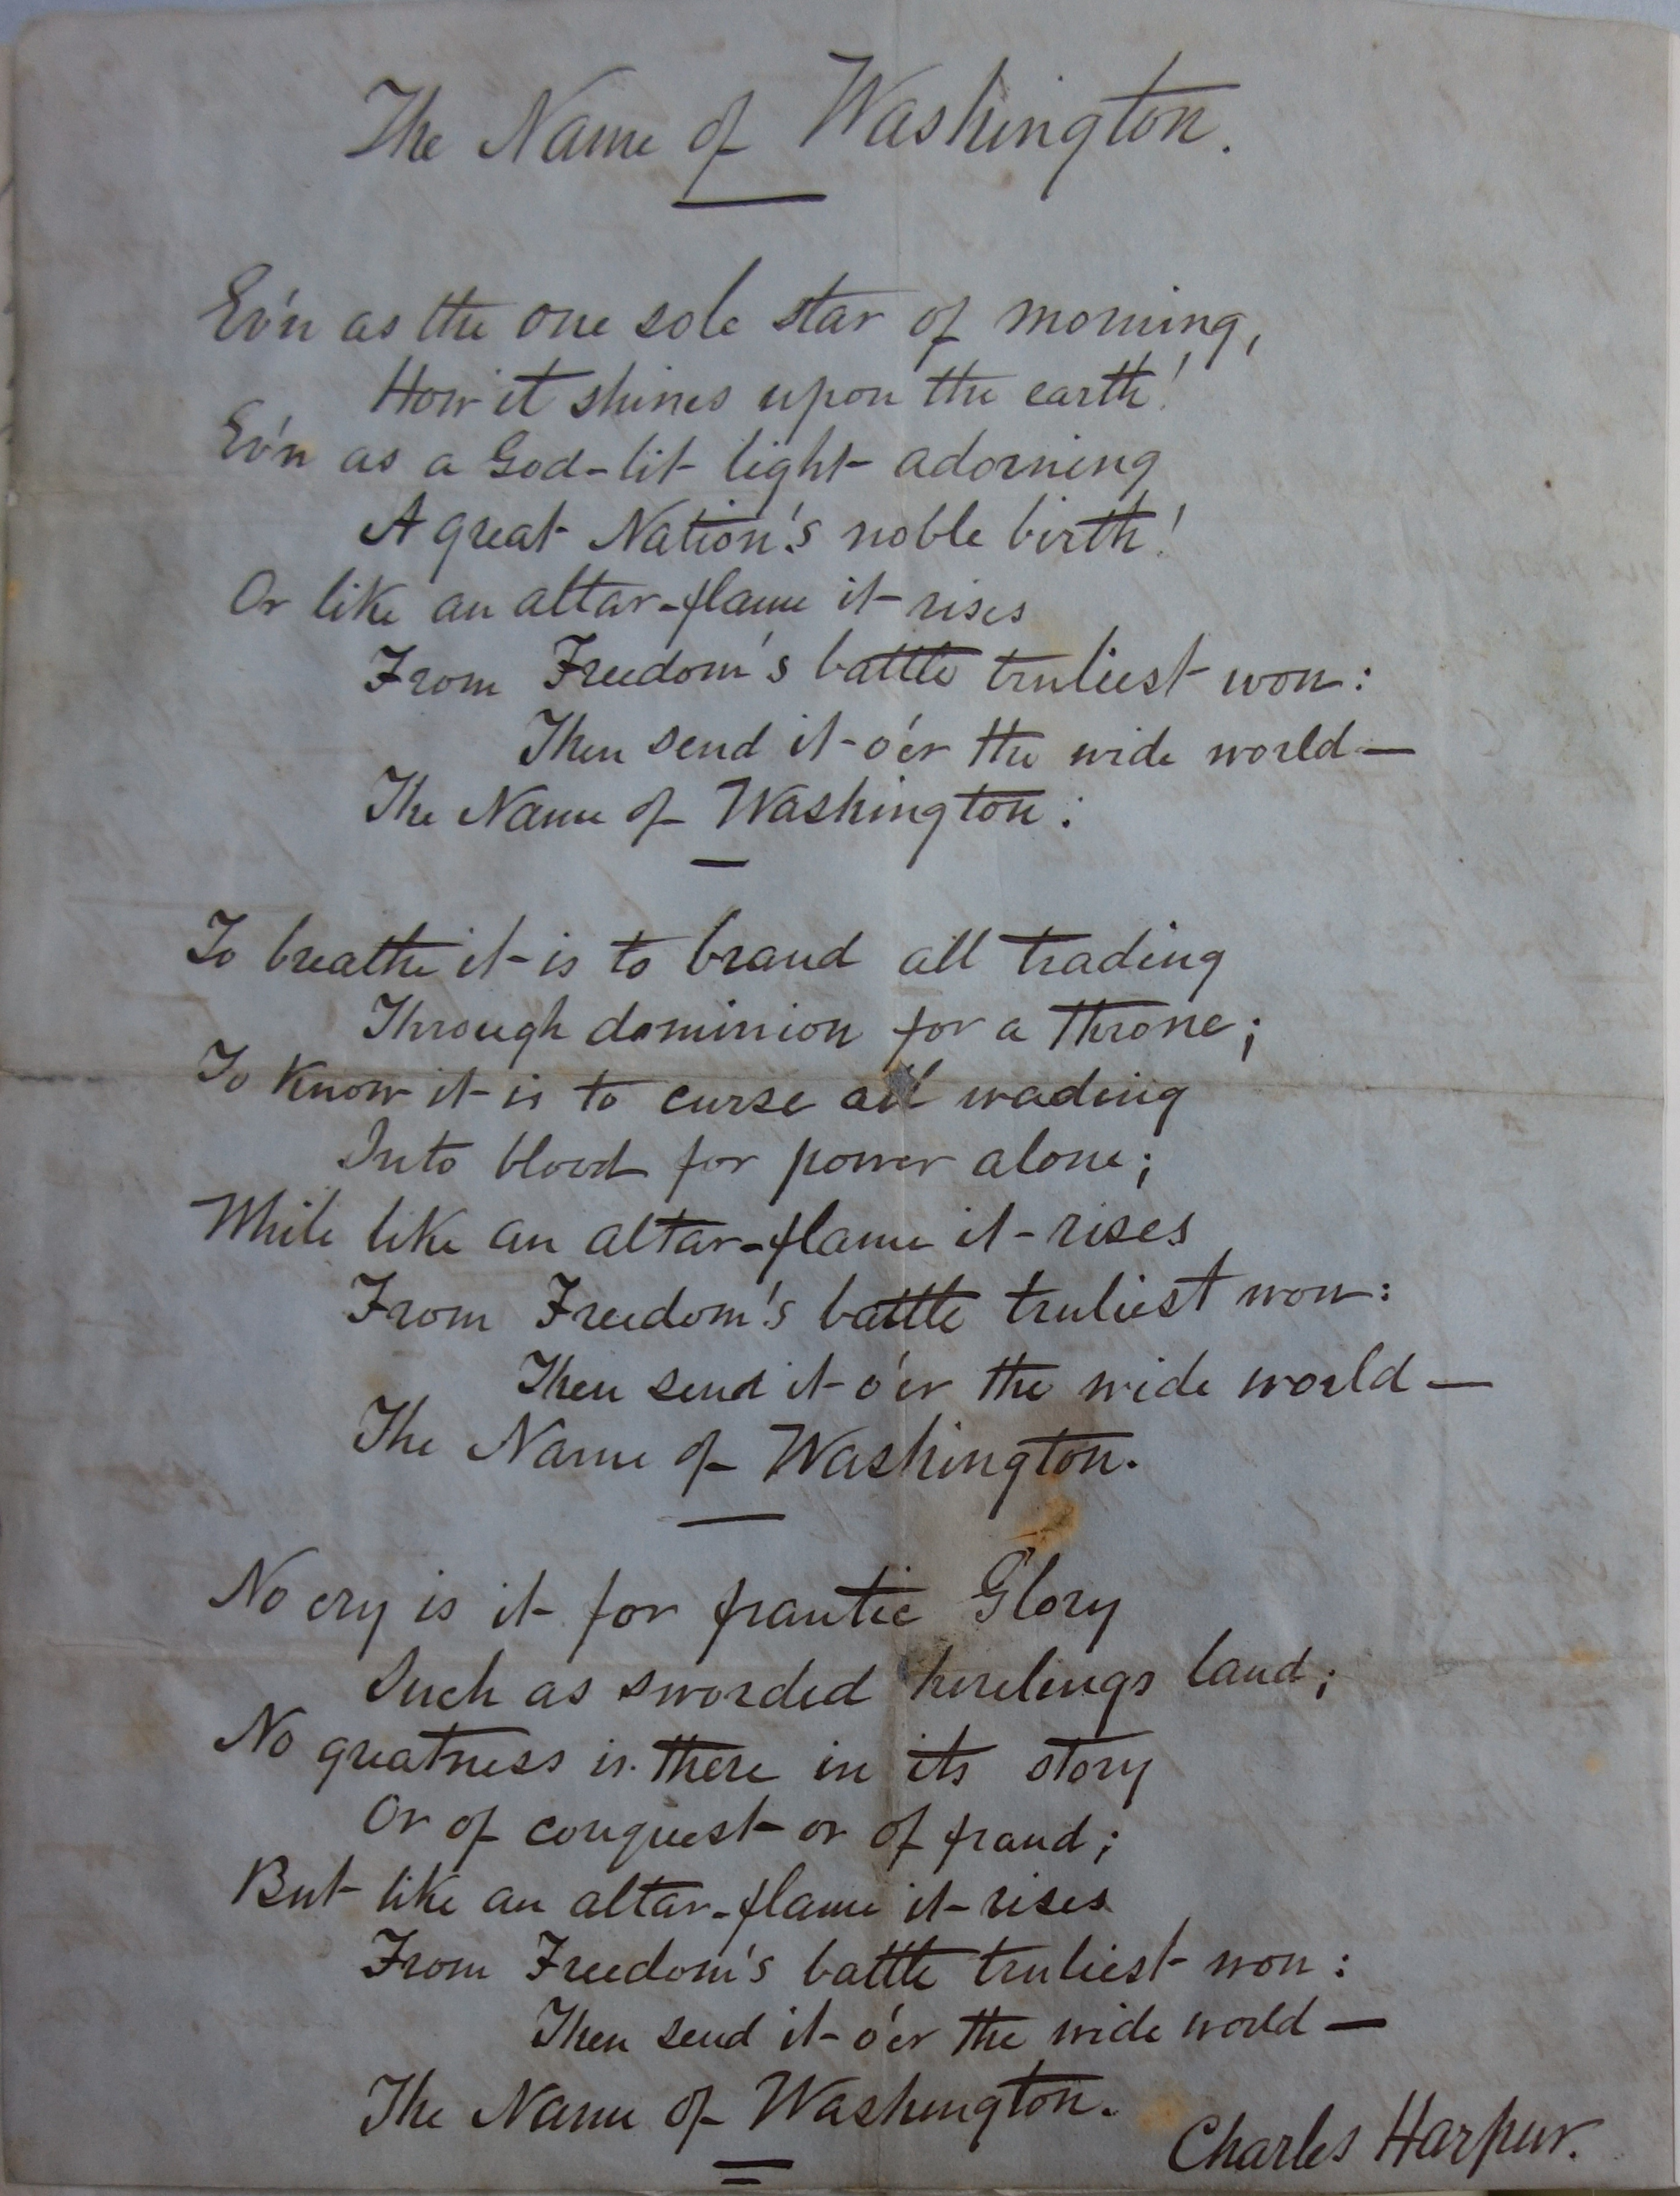 The Name of Washington.
Ev'n as the one sole star of morning,
How it shines upon the earth!
Ev'n as a God-lit light adorning
A great Nation's noble birth!
Or like an altar-flame it rises
From Freedom's battle truliest won:
Then send it o'er the wide world—
The Name of Washington:
To breathe it is to brand all trading
Through dominion for a throne;
To know it is to curse all wading
Into blood for power alone;
While like an altar-flame it rises
From Freedom's battle truliest won:
Then send it o'er the wide world—
The Name of Washington.
No cry is it for frantic Glory
Such as sworded hirelings laud;
No greatness is there in its story
Or of conquest or of fraud;
But like an altar-flame it rises
From Freedom's battle truliest won:
Then send it o'er the wide world—
The Name of Washington.
Charles Harpur.